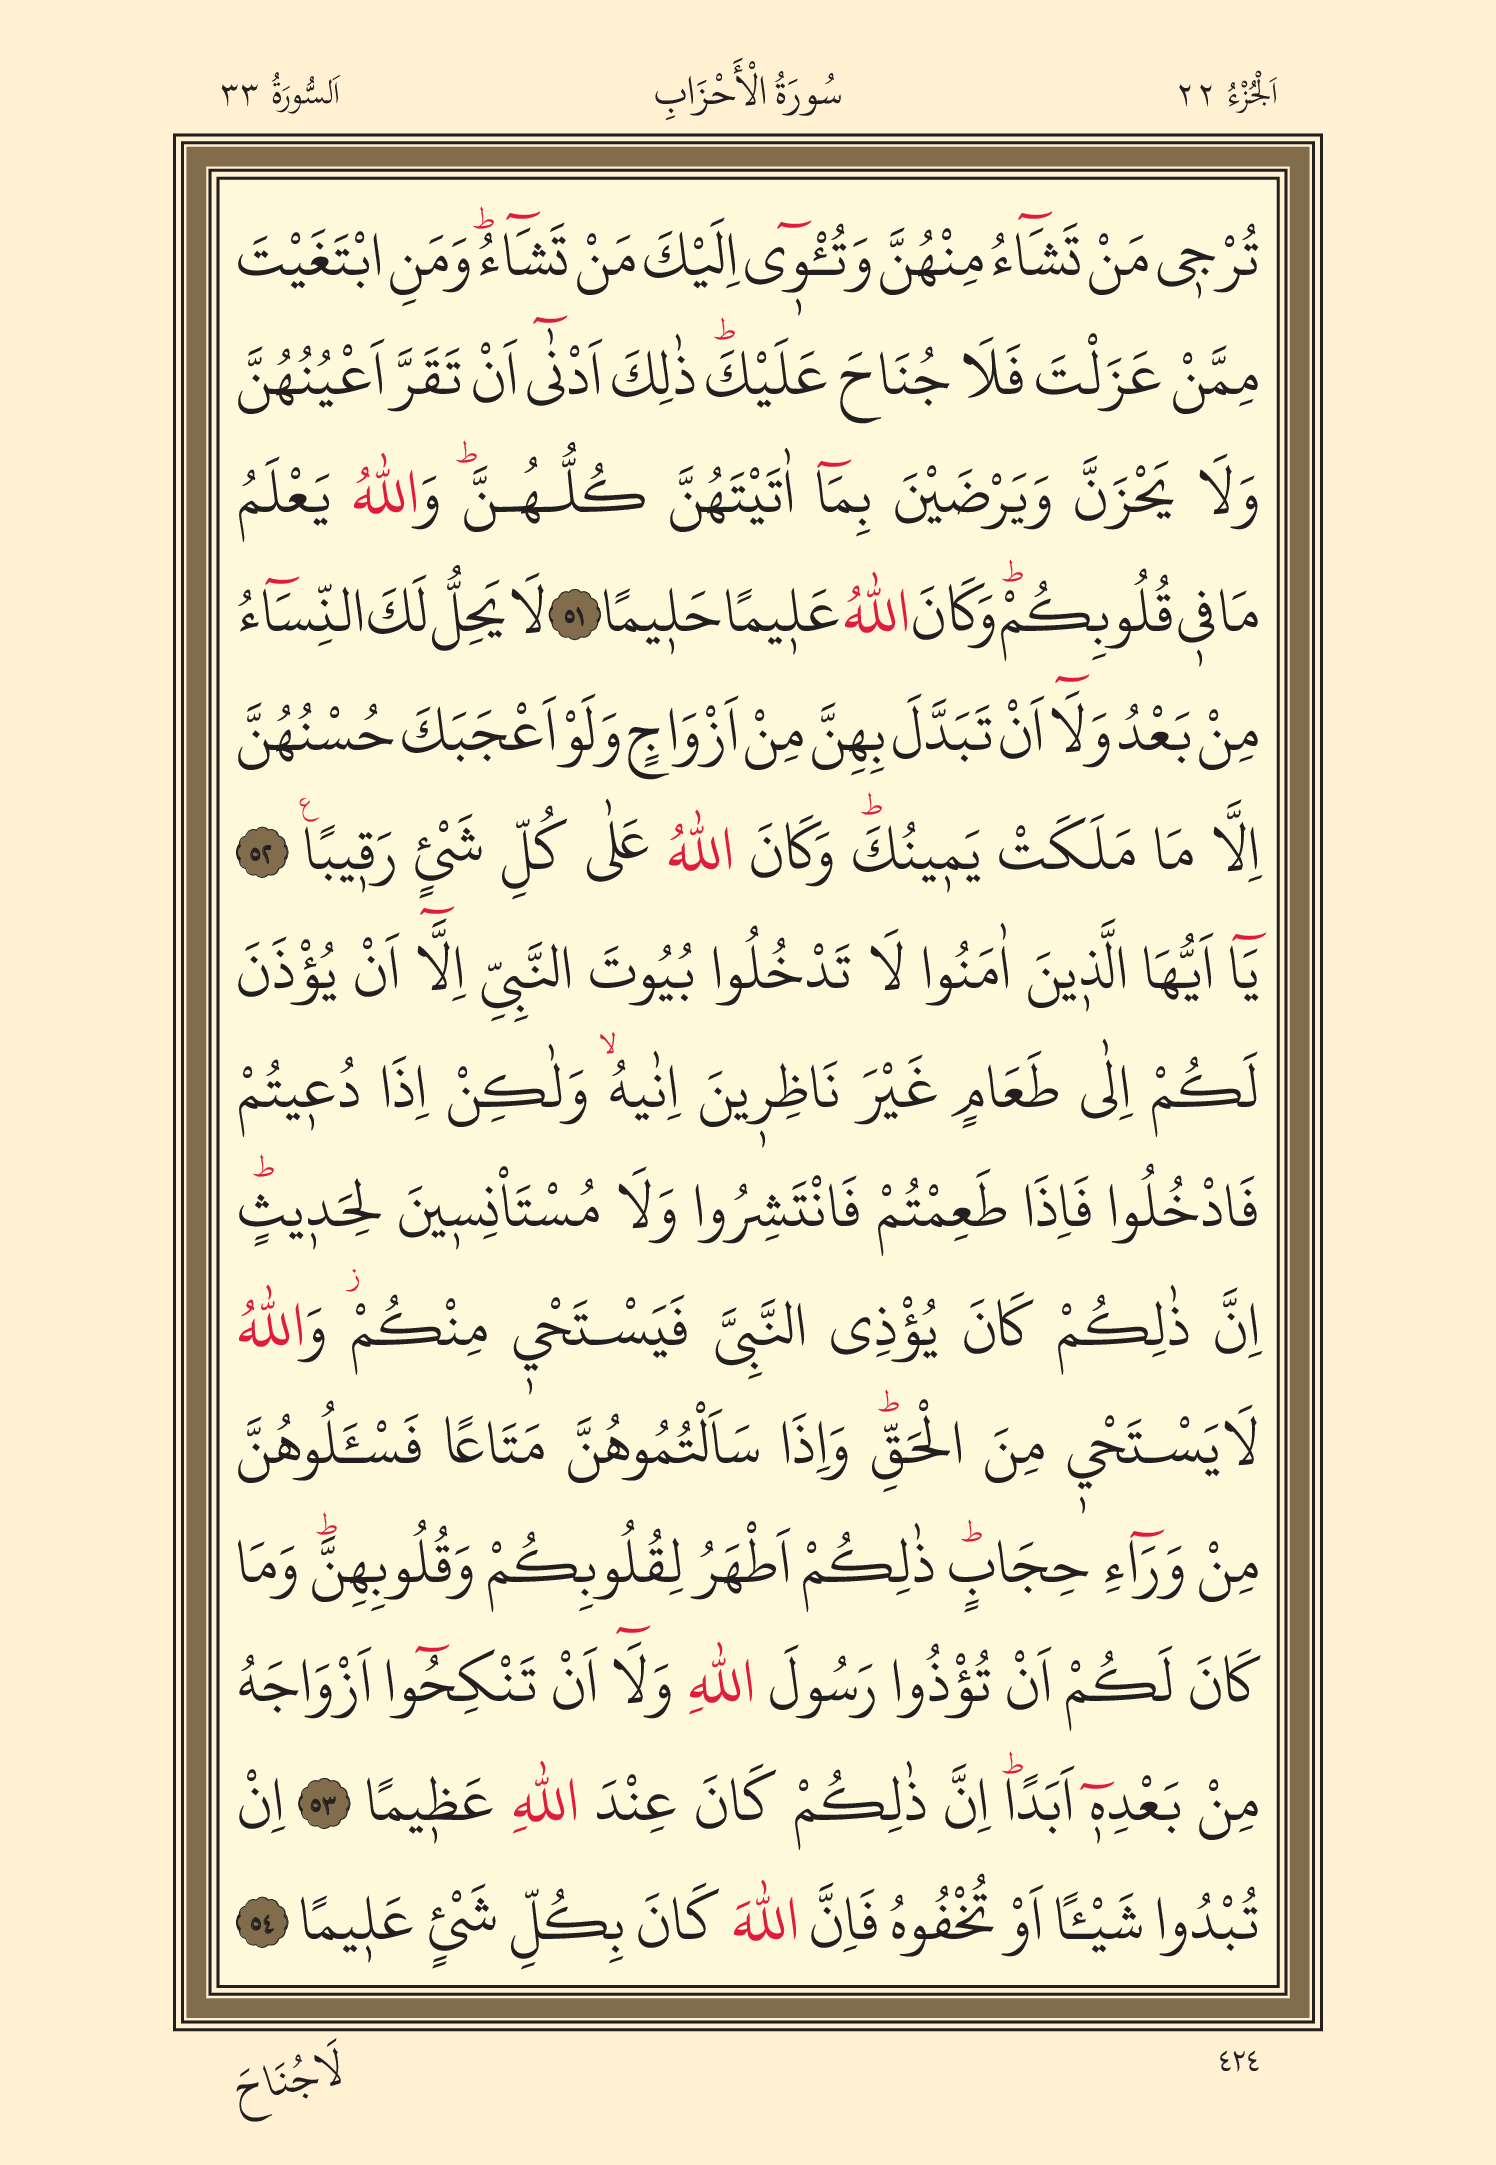 اَلْجُزْءُ ٢٢ سُورَةُ الْأَحْزَابِ اَلسُّورَةُ ٣٣
تُرْج۪ى مَنْ تَشَٓاءُ مِنْهُنَّ وَتُـْٔو۪ٓى اِلَيْكَ مَنْ تَشَٓاءُۜ وَمَنِ ابْتَغَيْتَ
مِمَّنْ عَزَلْتَ فَلَا جُنَاحَ عَلَيْكَۜ ذٰلِكَ اَدْنٰٓى اَنْ تَقَرَّ اَعْيُنُهُنَّ
وَلَا يَحْزَنَّ وَيَرْضَيْنَ بِمَٓا اٰتَيْتَهُنَّ كُلُّهُنَّۜ وَاللّٰهُ يَعْلَمُ
مَا ف۪ي قُلُوبِكُمْۜ وَكَانَ اللّٰهُ عَل۪يمًا حَل۪يمًا ٥١ لَا يَحِلُّ لَكَ النِّسَٓاءُ
مِنْ بَعْدُ وَلَٓا اَنْ تَبَدَّلَ بِهِنَّ مِنْ اَزْوَاجٍ وَلَوْ اَعْجَبَكَ حُسْنُهُنَّ
اِلَّا مَا مَلَكَتْ يَم۪ينُكَۜ وَكَانَ اللّٰهُ عَلٰى كُلِّ شَيْءٍ رَق۪يبًاۚ ٥٢
يَٓا اَيُّهَا الَّذ۪ينَ اٰمَنُوا لَا تَدْخُلُوا بُيُوتَ النَّبِيِّ اِلَّٓا اَنْ يُؤْذَنَ
لَكُمْ اِلٰى طَعَامٍ غَيْرَ نَاظِر۪ينَ اِنٰيهُۙ وَلٰكِنْ اِذَا دُع۪يتُمْ
فَادْخُلُوا فَاِذَا طَعِمْتُمْ فَانْتَشِرُوا وَلَا مُسْتَاْنِس۪ينَ لِحَد۪يثٍۜ
اِنَّ ذٰلِكُمْ كَانَ يُؤْذِى النَّبِىَّ فَيَسْتَحْي۪ مِنْكُمْۘ وَاللّٰهُ
لَا يَسْتَحْي۪ مِنَ الْحَقِّۜ وَاِذَا سَاَلْتُمُوهُنَّ مَتَاعًا فَسْـَٔلُوهُنَّ
مِنْ وَرَٓاءِ حِجَابٍۜ ذٰلِكُمْ اَطْهَرُ لِقُلُوبِكُمْ وَقُلُوبِهِنَّۜ وَمَا
كَانَ لَكُمْ اَنْ تُؤْذُوا رَسُولَ اللّٰهِ وَلَٓا اَنْ تَنْكِحُٓوا اَزْوَاجَهُ
مِنْ بَعْدِه۪ٓ اَبَدًاۜ اِنَّ ذٰلِكُمْ كَانَ عِنْدَ اللّٰهِ عَظ۪يمًا ٥٣ اِنْ
تُبْدُوا شَيْـًٔا اَوْ تُخْفُوهُ فَاِنَّ اللّٰهَ كَانَ بِكُلِّ شَيْءٍ عَل۪يمًا ٥٤
٤٢٤ لَا جُنَاحَ